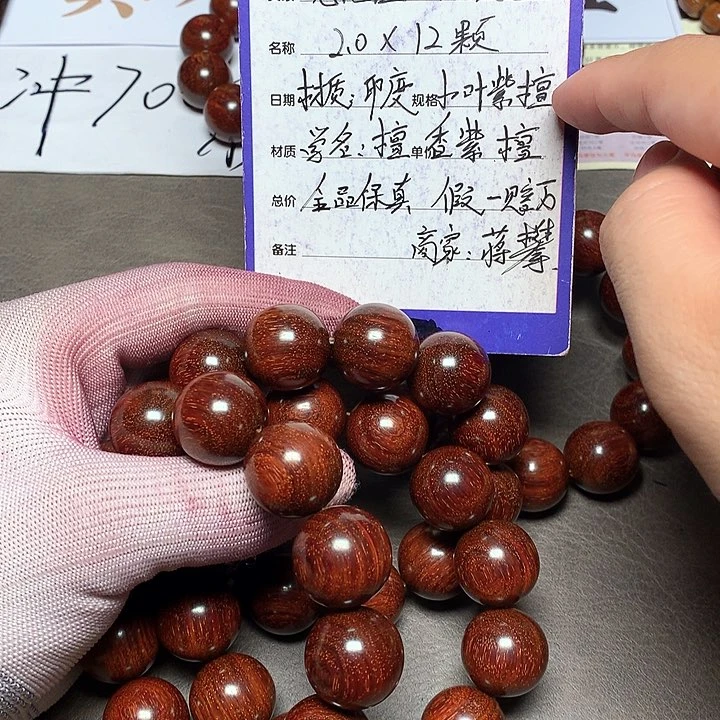 名称 2.0 X 12颗
日期 材质:印度 规格 小叶紫檀
材质 学名:檀 单价 香紫檀
总价 全品保真 假一赔万
备注 商家:蒋攀
冲70